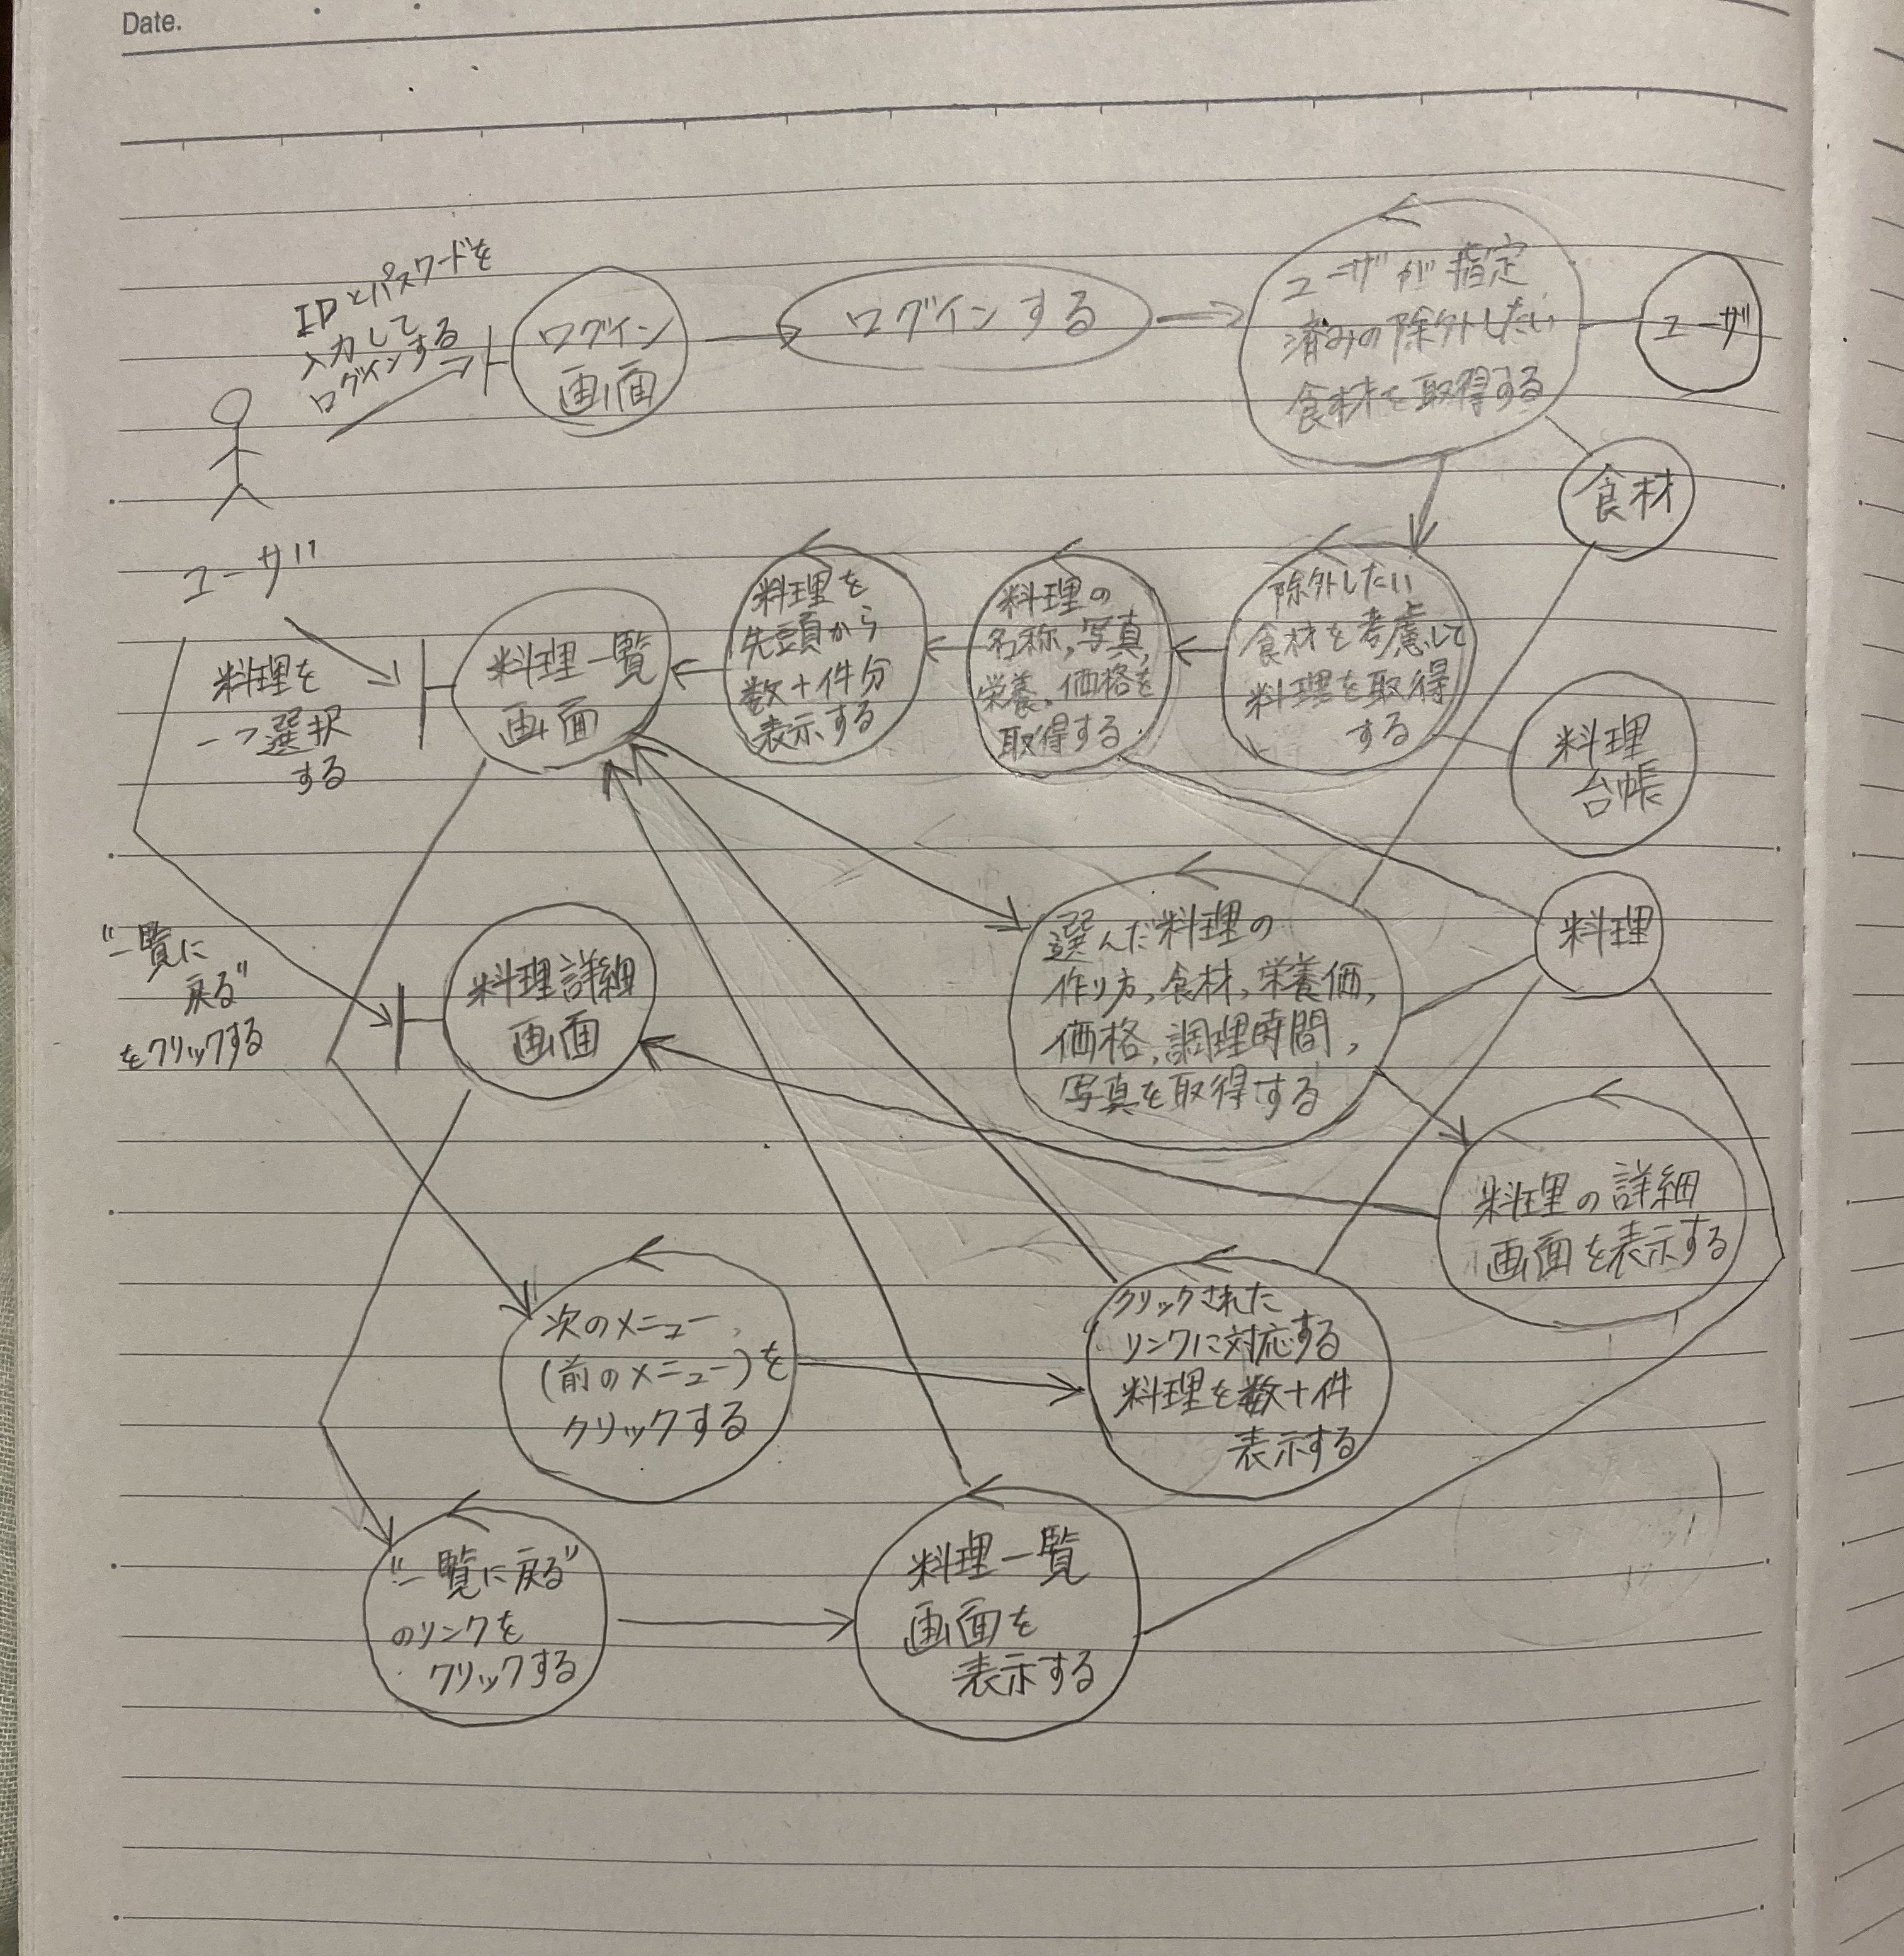 Date.
IDとパスワードを
入力して
ログインする
ログイン
画面
ログインする
ユーザが指定
済みの除外したい
食材を取得する
ユーザ
食材
ユーザ
料理を
一つ選択
する
料理一覧
画面
料理を
先頭から
数十件分
表示する
料理の
名称,写真,
栄養,価格を
取得する
除外したい
食材を考慮して
料理を取得
する
料理
台帳
"一覧に
戻る"
をクリックする
料理詳細
画面
選んだ料理の
作り方,食材,栄養価,
価格,調理時間,
写真を取得する
料理
料理の詳細
画面を表示する
次のメニュー
(前のメニュー)を
クリックする
クリックされた
リンクに対応する
料理を数十件
表示する
"一覧に戻る"
のリンクを
クリックする
料理一覧
画面を
表示する